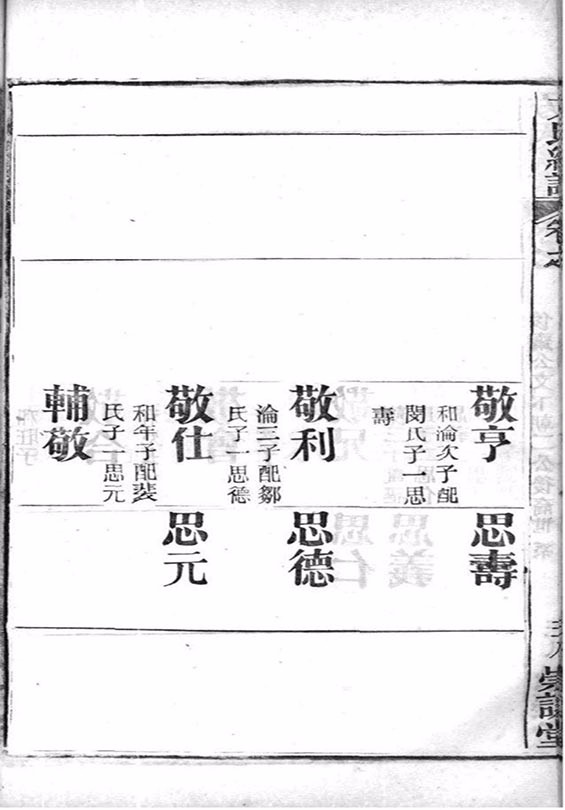 敬亨
和淪次子配
閔氏子一思
壽
思壽
敬利
淪三子配鄒
氏子一思德
思德
敬仕
和年子配裴
氏子一思元
思元
輔敬
崇譜堂